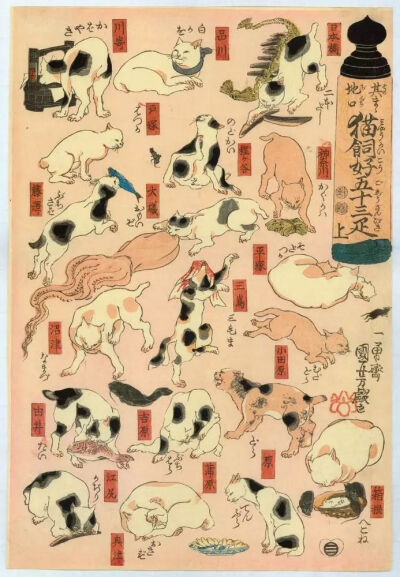 其まゝ
地口
猫飼好五十三疋
みやうかいこう
上
日本橋
二本だし
品川
白かお
川崎
かばやき
神奈川
かぐかは
程ヶ谷
のどかい
戸塚
はつか
藤澤
ぶちさば
大磯
おもいぞ
平塚
そだつか
小田原
むだどら
箱根
へこね
三島
三毛ま
沼津
なまづ
原
どら
吉原
ぶちはら
蒲原
てんぷら
由井
たい
興津
おきず
江尻
かぢり
一勇齋
國芳